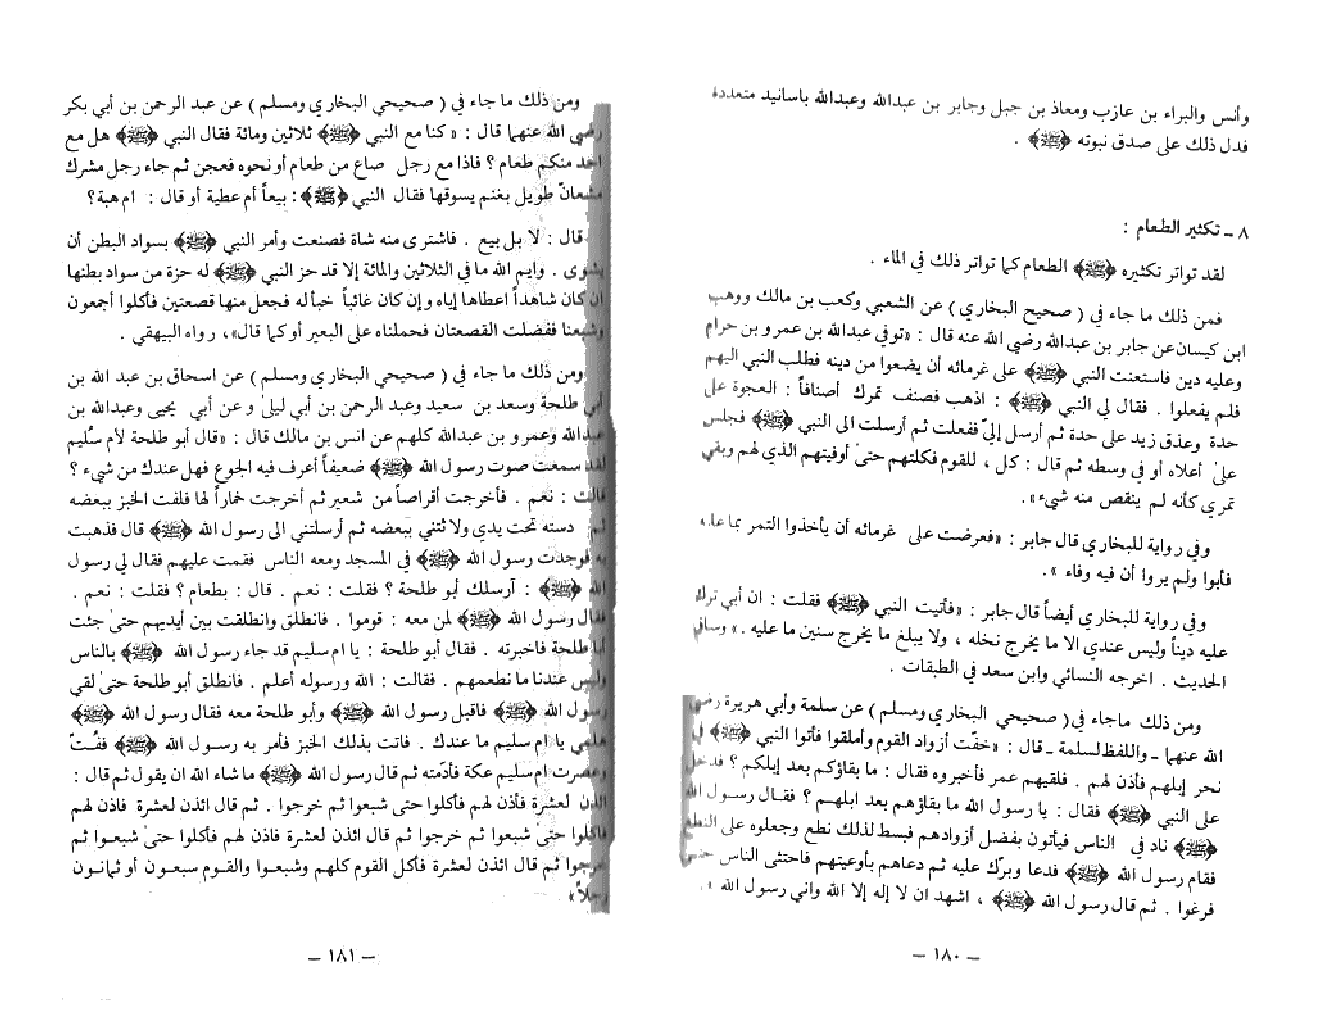 وأنس والبراء بن عازب ومعاذ بن جبل وجابر بن عبدالله وعبدالله باسانيد متعددة
فدل ذلك على صدق نبوته ﴿ﷺ﴾ .
٨ ـ تكثير الطعام :
لقد تواتر تكثيره ﴿ﷺ﴾ الطعام كما تواتر ذلك في الماء .
فمن ذلك ما جاء في ( صحيح البخاري ) عن الشعبي وكعب بن مالك ووهب
ابن كيسان عن جابر بن عبدالله رضي الله عنه قال : «توفي عبدالله بن عمرو بن حرام
وعليه دين فاستعنت النبي ﴿ﷺ﴾ على غرمائه أن يضعوا من دينه فطلب النبي اليهم
فلم يفعلوا . فقال لي النبي ﴿ﷺ﴾ : اذهب فصنف تمرك أصنافاً : العجوة على
حدة وعذق زيد على حدة ثم أرسل إليّ ففعلت ثم أرسلت الى النبي ﴿ﷺ﴾ فجلس
علىٰ أعلاه أو في وسطه ثم قال : كل ، للقوم فكلتهم حتىٰ أوفيتهم الذي لهم وبقي
تمري كأنه لم ينقص منه شيء» .
وفي رواية للبخاري قال جابر : «فعرضت على غرمائه أن يأخذوا التمر بما عليه
فأبوا ولم يروا أن فيه وفاء » .
وفي رواية للبخاري أيضاً قال جابر : «فأتيت النبي ﴿ﷺ﴾ فقلت : ان أبي ترك
عليه ديناً وليس عندي الا ما يخرج نخله ، ولا يبلغ ما يخرج سنين ما عليه .» وساق
الحديث . اخرجه النسائي وابن سعد في الطبقات .
ومن ذلك ماجاء في ( صحيحي البخاري ومسلم ) عن سلمة وأبي هريرة رضي
الله عنهما ـ واللفظ لسلمة ـ قال : «خفّت أزواد القوم وأملقوا فأتوا النبي ﴿ﷺ﴾ في
نحر إبلهم فأذن لهم . فلقيهم عمر فأخبروه فقال : ما بقاؤكم بعد إبلكم ؟ فدخل
على النبي ﴿ﷺ﴾ فقال : يا رسول الله ما بقاؤهم بعد ابلهم ؟ فقال رسول الله
﴿ﷺ﴾ ناد في الناس فيأتون بفضل أزوادهم فبسط لذلك نطع وجعلوه على النطع
فقام رسول الله ﴿ﷺ﴾ فدعا وبرّك عليه ثم دعاهم بأوعيتهم فاحتثى الناس حتى
فرغوا . ثم قال رسول الله ﴿ﷺ﴾ ، اشهد ان لا إله إلا الله واني رسول الله » .
ـ ١٨٠ ـ
ومن ذلك ما جاء في ( صحيحي البخاري ومسلم ) عن عبد الرحمن بن أبي بكر
رضي الله عنهما قال : « كنا مع النبي ﴿ﷺ﴾ ثلاثين ومائة فقال النبي ﴿ﷺ﴾ هل مع
احد منكم طعام ؟ فاذا مع رجل صاع من طعام أو نحوه فعجن ثم جاء رجل مشرك
مشعانّ طويل بغنم يسوقها فقال النبي ﴿ﷺ﴾ : بيعاً أم عطية أو قال : ام هبة ؟
قال : لا بل بيع . فاشترى منه شاة فصنعت وأمر النبي ﴿ﷺ﴾ بسواد البطن أن
يشوى . وايم الله ما في الثلاثين والمائة إلا قد حز النبي ﴿ﷺ﴾ له حزة من سواد بطنها
ان كان شاهداً اعطاها إياه وإن كان غائباً خبأ له فجعل منها قصعتين فأكلوا أجمعون
وشبعنا ففضلت القصعتان فحملناه على البعير أو كما قال» ، رواه البيهقي .
ومن ذلك ما جاء في ( صحيحي البخاري ومسلم ) عن اسحاق بن عبد الله بن
أبي طلحة وسعد بن سعيد وعبد الرحمن بن أبي ليلىٰ وعن أبي يحيى وعبدالله بن
عبدالله وعمرو بن عبدالله كلهم عن انس بن مالك قال : «قال أبو طلحة لأم سُليم
لقد سمعت صوت رسول الله ﴿ﷺ﴾ ضعيفاً أعرف فيه الجوع فهل عندك من شيء ؟
قالت : نعم . فأخرجت أقراصاً من شعير ثم أخرجت خماراً لها فلفت الخبز ببعضه
ثم دسته تحت يدي ولاثتني ببعضه ثم أرسلتني الى رسول الله ﴿ﷺ﴾ قال فذهبت
به فوجدت رسول الله ﴿ﷺ﴾ في المسجد ومعه الناس فقمت عليهم فقال لي رسول
الله ﴿ﷺ﴾ : آرسلك أبو طلحة ؟ فقلت : نعم . قال : بطعام ؟ فقلت : نعم .
فقال رسول الله ﴿ﷺ﴾ لمن معه : قوموا . فانطلق وانطلقت بين أيديهم حتىٰ جئت
أبا طلحة فاخبرته . فقال أبو طلحة : يا ام سليم قد جاء رسول الله ﴿ﷺ﴾ بالناس
وليس عندنا ما نطعمهم . فقالت : الله ورسوله أعلم . فانطلق أبو طلحة حتىٰ لقي
رسول الله ﴿ﷺ﴾ فاقبل رسول الله ﴿ﷺ﴾ وأبو طلحة معه فقال رسول الله ﴿ﷺ﴾
هلمي يا ام سليم ما عندك . فاتت بذلك الخبز فأمر به رسول الله ﴿ﷺ﴾ ففُتّ
وعصرت ام سليم عكة فأدمّته ثم قال رسول الله ﴿ﷺ﴾ ما شاء الله ان يقول ثم قال :
ائذن لعشرة فأذن لهم فأكلوا حتى شبعوا ثم خرجوا . ثم قال ائذن لعشرة فاذن لهم
فأكلوا حتىٰ شبعوا ثم خرجوا ثم قال ائذن لعشرة فاذن لهم فأكلوا حتىٰ شبعوا ثم
خرجوا ثم قال ائذن لعشرة فأكل القوم كلهم وشبعوا والقوم سبعون أو ثمانون
رجلاً»
ـ ١٨١ ـ